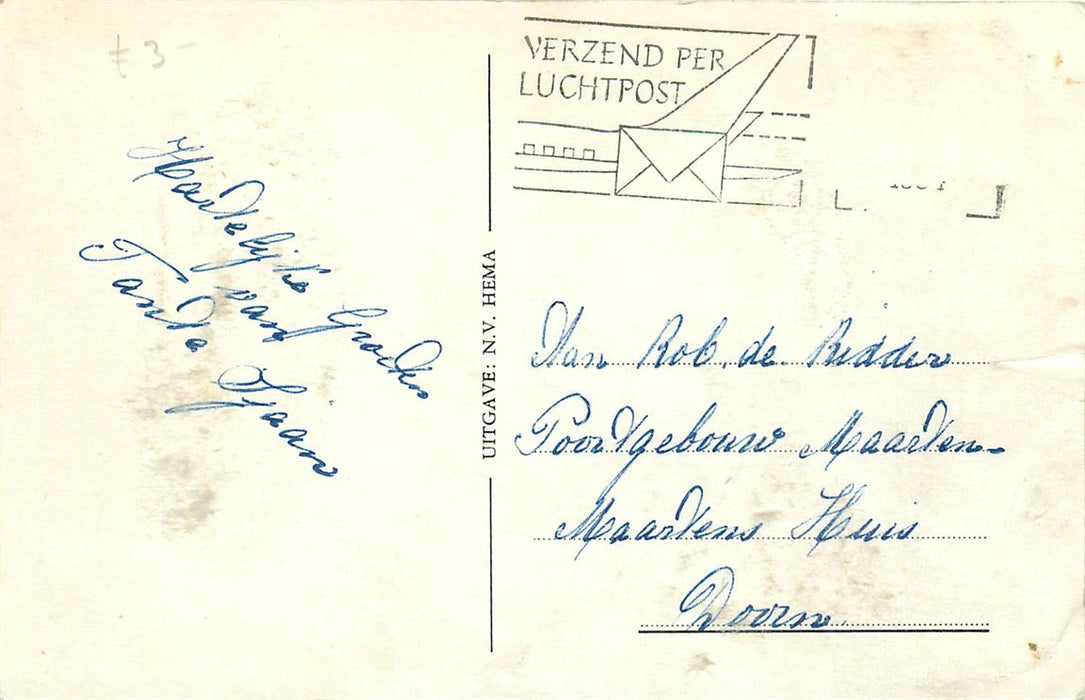 £ 3 -
VERZEND PER
LUCHTPOST
Hartelijke Groeten
van
Tante Sjaan
UITGAVE: N.V. HEMA
Aan Rob. de Ridder
Poortgebouw Maarten-
Maartens Huis
Doorn.